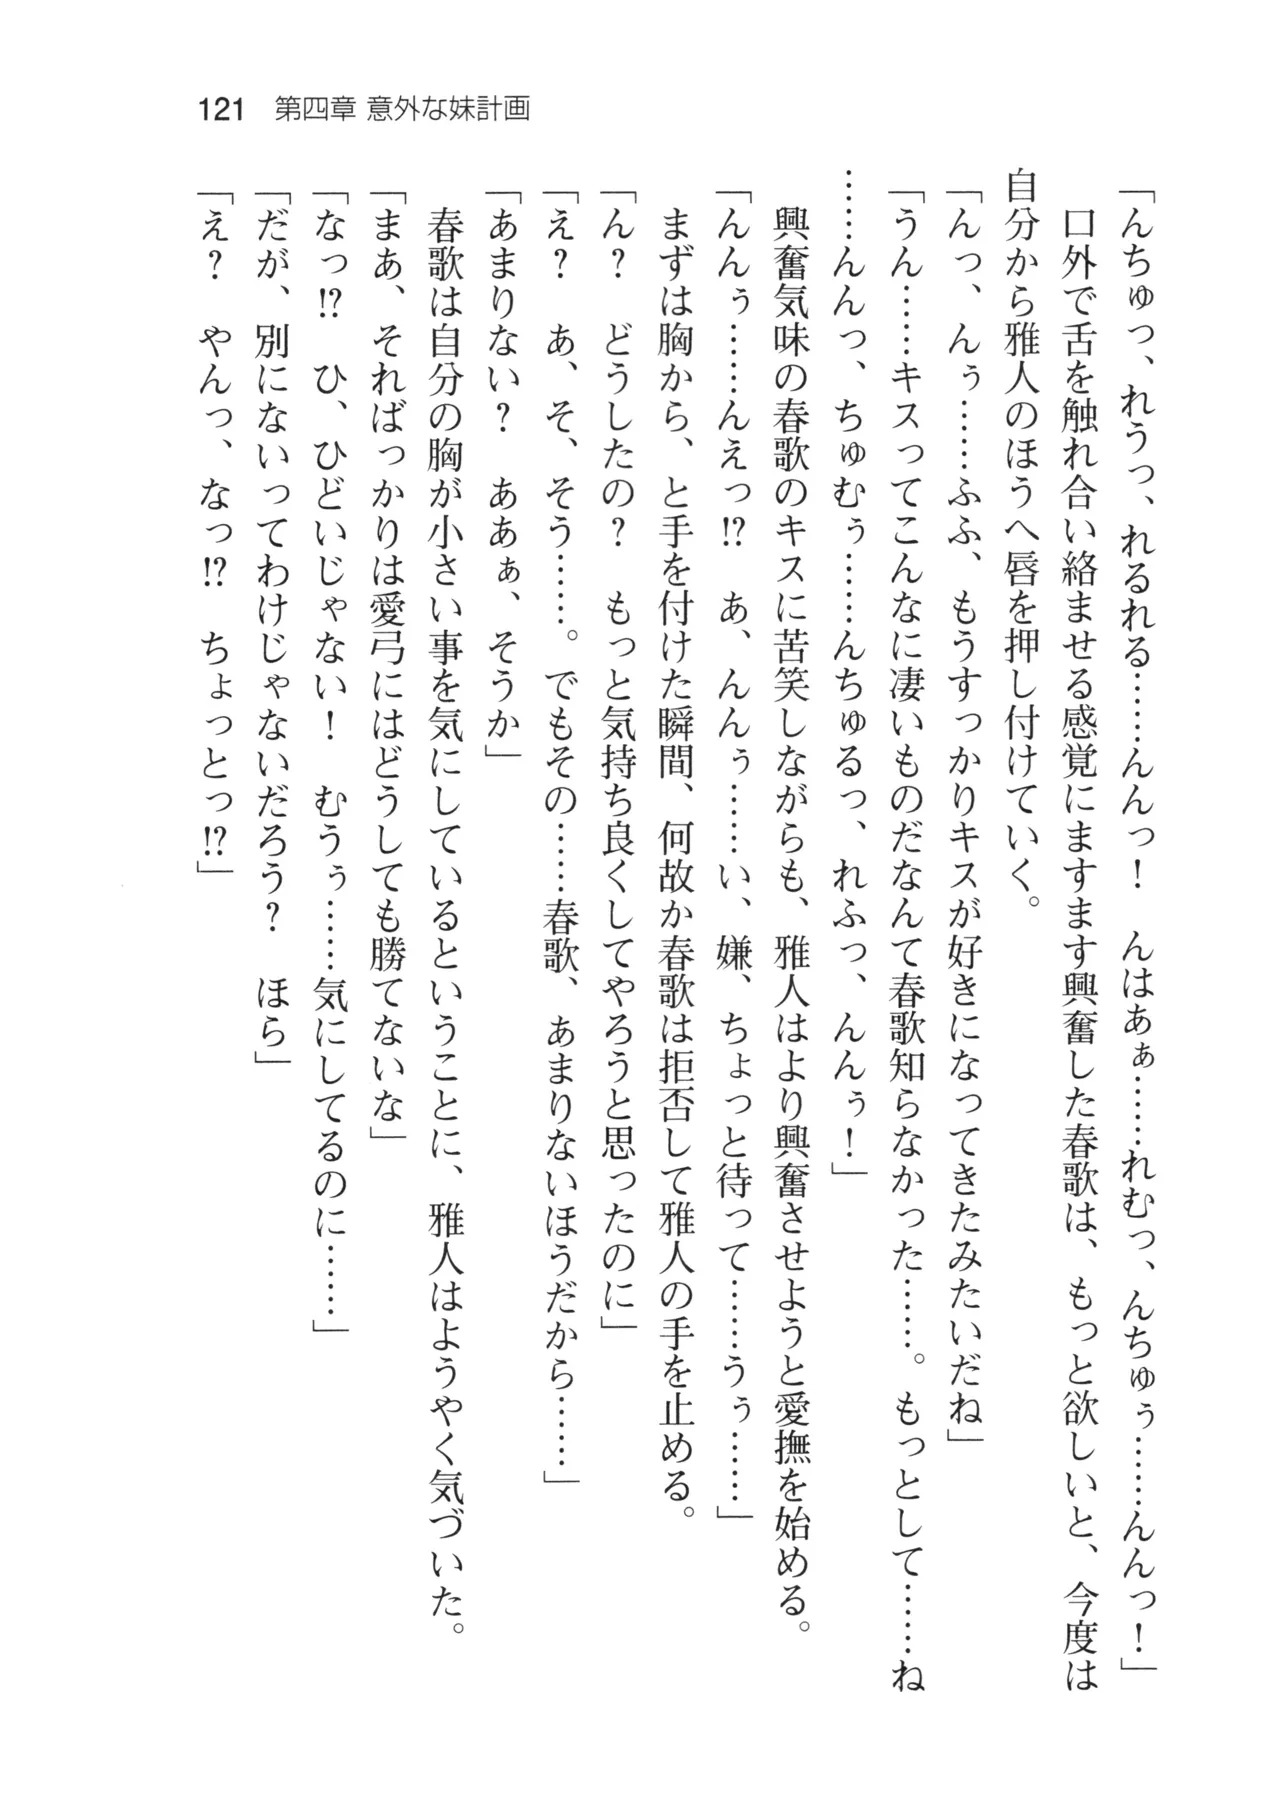 121 第四章 意外な妹計画
「んちゅっ、れうっ、れるれる……んんっ！　んはあぁ……れむっ、んちゅぅ……んんっ！」
口外で舌を触れ合い絡ませる感覚にますます興奮した春歌は、もっと欲しいと、今度は
自分から雅人のほうへ唇を押し付けていく。
「んっ、んぅ……ふふ、もうすっかりキスが好きになってきたみたいだね」
「うん……キスってこんなに凄いものだなんて春歌知らなかった……。もっとして……ね
……んんっ、ちゅむぅ……んちゅるっ、れふっ、んんぅ！」
興奮気味の春歌のキスに苦笑しながらも、雅人はより興奮させようと愛撫を始める。
「んんぅ……んえっ!?　あ、んんぅ……い、嫌、ちょっと待って……うぅ……」
まずは胸から、と手を付けた瞬間、何故か春歌は拒否して雅人の手を止める。
「ん？　どうしたの？　もっと気持ち良くしてやろうと思ったのに」
「え？　あ、そ、そう……。でもその……春歌、あまりないほうだから……」
「あまりない？　ああぁ、そうか」
春歌は自分の胸が小さい事を気にしているということに、雅人はようやく気づいた。
「まあ、そればっかりは愛弓にはどうしても勝てないな」
「なっ!?　ひ、ひどいじゃない！　むうぅ……気にしてるのに……」
「だが、別にないってわけじゃないだろう？　ほら」
「え？　やんっ、なっ!?　ちょっとっ!?」